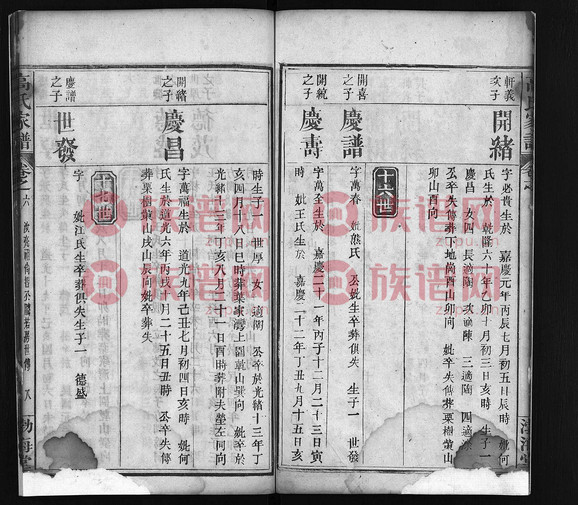 軒義
次子
開緒
字必貴生於 嘉慶元年丙辰七月初五日辰時 妣何
氏生於 乾隆六十年乙卯十月初三日亥時 生子一
慶昌 女四 長適陶 次適陳 三適陶 四適
公卒失傳葬丁地尚酉山卯向 妣卒失傳葬栗樹
卯山酉向
十六世
開喜
之子
慶譜
字萬春 妣熊氏 公妣生卒葬俱失 生子一 世發
開統
之子
慶壽
字萬全生於 嘉慶二十一年丙子十二月二十三日寅
時 妣王氏生於 嘉慶二十二年丁丑九月十五日亥
時生子一 世厚 女一 適湖 公卒於光緒十三年丁
亥四月十八日巳時葬葉家灣上園乾山巽向 妣卒於
光緒十三年丁亥八月二十一日酉時葬附夫塋左同向
開緒
之子
慶昌
字萬福生於 道光九年己丑七月初四日亥時 妣何
氏生於道光六年丙戌十月二十五日丑時 公卒失傳
葬栗樹 山戌山辰向妣卒葬失
十七世
慶譜
之子
世發
字 妣江氏生卒葬俱失生子一 德盛
高氏家譜
卷之六
八
渤海堂
族谱网
zupu.cn